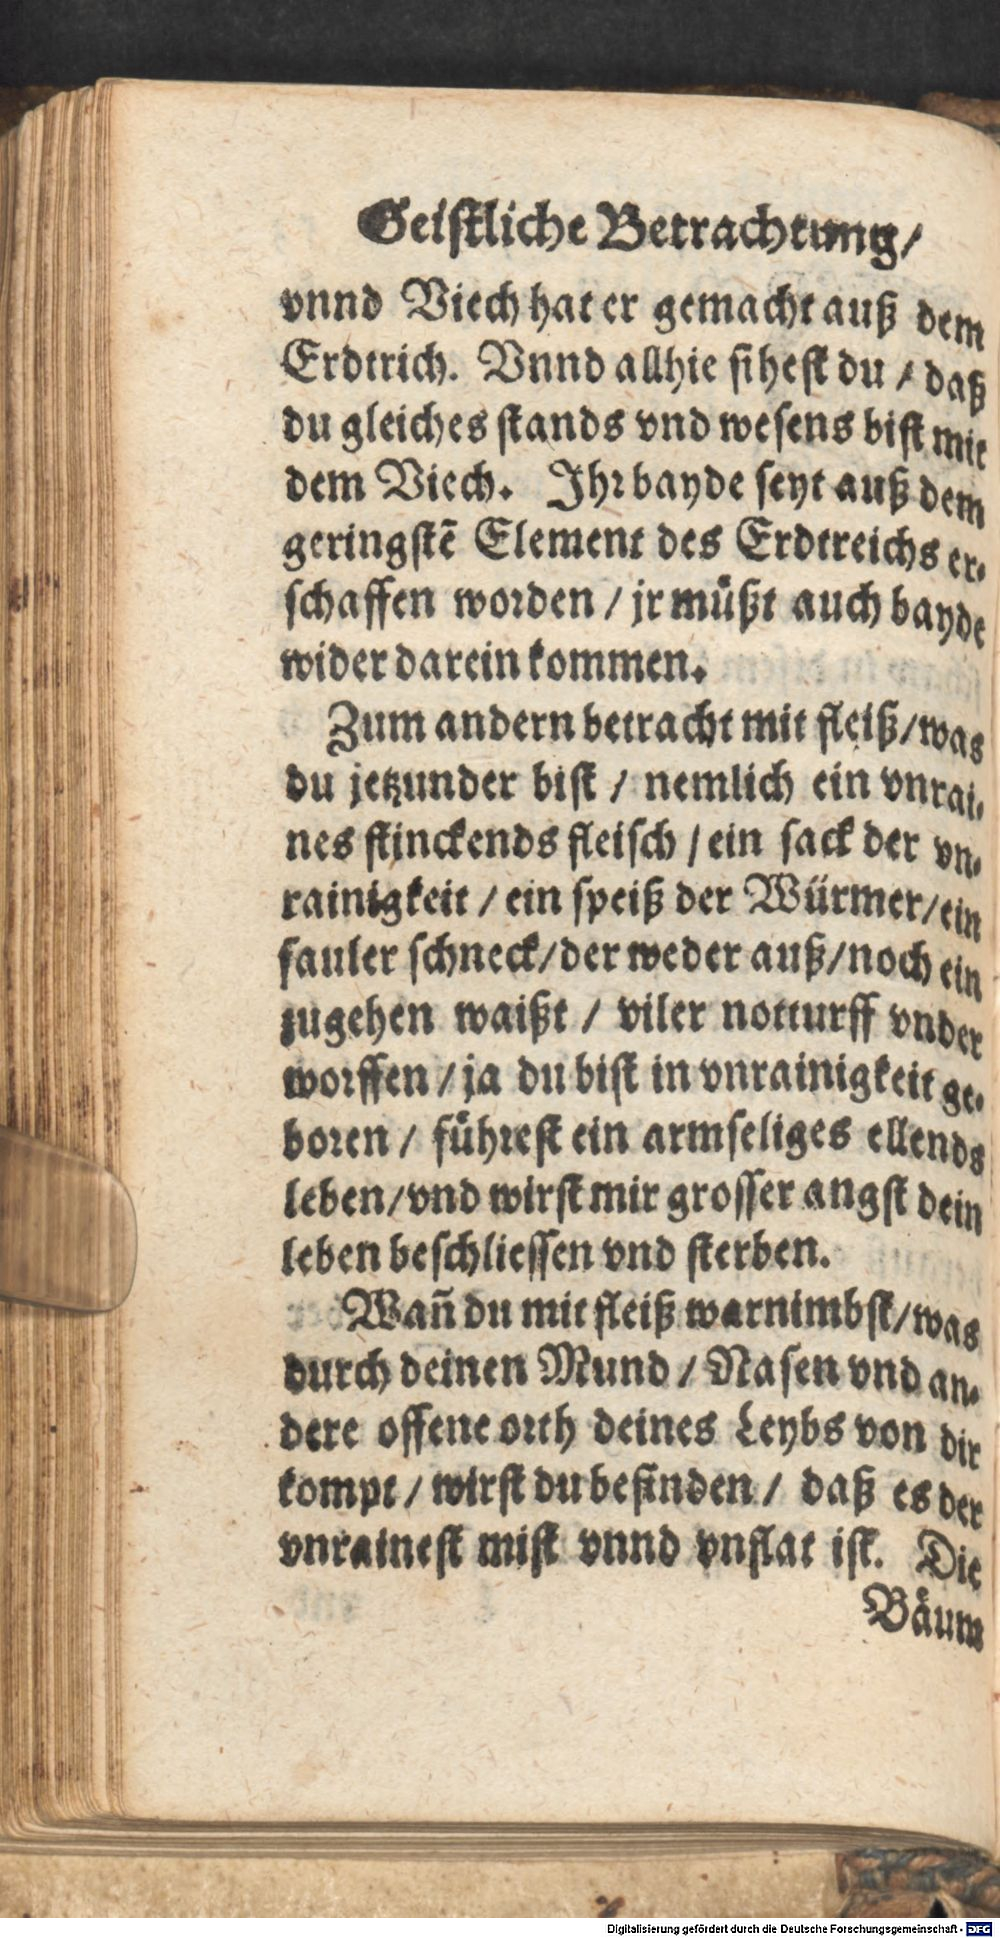 Geistliche Betrachtung/
vnnd Viech hat er gemacht auß dem
Erdtrich. Vnnd allhie sihest du / daß
du gleiches stands vnd wesens bist mit
dem Viech. Ihr bayde seyt auß dem
geringstẽ Element des Erdtreichs er-
schaffen worden / jr müßt auch bayde
wider darein kommen.
Zum andern betracht mit fleiß/was
du jetzunder bist / nemlich ein vnrai-
nes stinckends fleisch / ein sack der vn-
rainigkeit / ein speiß der Würmer/ein
fauler schneck/der weder auß/noch ein
zugehen waißt / viler notturff vnder
worffen / ja du bist in vnrainigkeit ge-
boren / führest ein armseliges ellends
leben/vnd wirst mir grosser angst dein
leben beschliessen vnd sterben.
Wañ du mit fleiß warnimbst/was
durch deinen Mund / Nasen vnd an-
dere offene orth deines Leybs von dir
kompt / wirst du befinden / daß es der
vnrainest mist vnnd vnflat ist. Die
Bäum
Digitalisierung gefördert durch die Deutsche Forschungsgemeinschaft - DFG